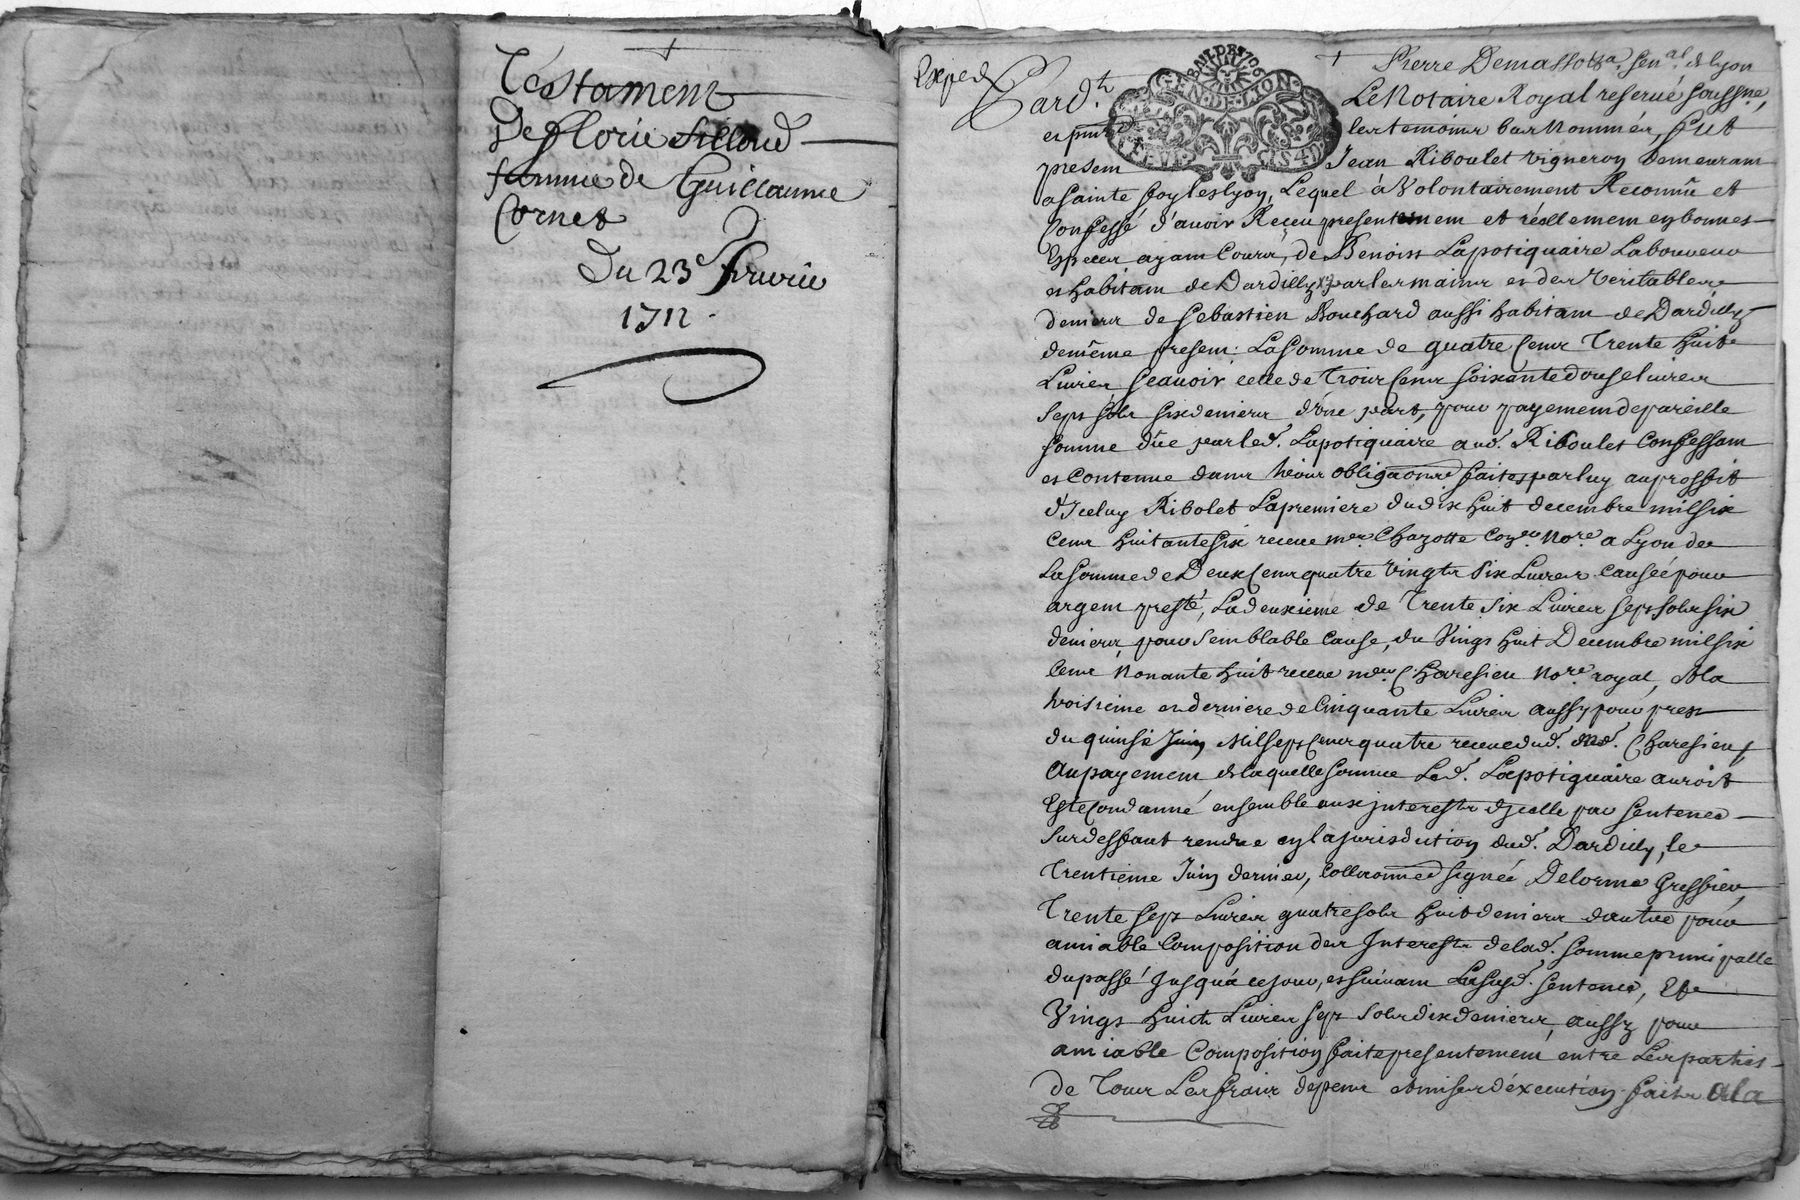 Testament
De florie Sillond
femme de Guillaume
Cornet
Du 23e feuvrier
1712.
Exped
Pardt
GEN·DE·LYON
Pierre Demasso senal. de lyon
Le Notaire Royal reservé soussné,
et
les temoins bas Nommés, fut
present
Jean Riboulet vigneron demeurant
a Sainte foy les lyon, Lequel à Volontairement Reconnu et
Confessé d'avoir Receu presentement et réellement en bonnes
Especes ayant Cours, de Benoist Lapotiquaire Laboureur
et habitant de Dardilly par les mains et des veritables
deniers de Sebastien Bouchard aussi habitant de Dardilly
de même present: La Somme de quatre Cents Trente huit
Livres Scavoir celle de Trois Cents Soixante douse livres
Sept sols six deniers d'une part, pour payement de pareille
somme düe par led. Lapotiquaire aud. Riboulet Confessant
et Contenue dans trois obligaons faites par luy au proffit
d'Iceluy Ribolet La premiere du dix huit decembre mil six
Cents huitante six receue me Chazotte No.re a Lyon de
La Somme de Deux Cents quatre Vingts Six Livres Causée pour
argent presté, La deuxieme de Trente Six Livres sept sols six
deniers pour Semblable Cause, du Vingt huit Decembre mil six
Cents Nonante huit receue me Charesieu No.re royal, et la
troisieme et derniere de Cinquante Livres aussy pour prest
du quinse Juin Mil Sept Cents quatre receue dud. me. Charesieu,
Au payement de laquelle Somme Led. Lapotiquaire auroit
Esté Condanné ensemble aux interests d'jcelle par Sentence
sur deffaut rendue en la jurisdiction dud. Dardilly, le
Trentieme Juin dernier, Collationnée signée Delorme Greffier,
Trente sept Livres quatre sols huit deniers d'autre pour
amiable Composition des Interests de lad. Somme principalle
du passé Jusqu'a ce jour, et suivant La susd. Sentence, Et
Vingt huict Livres sept Sols dix deniers, aussy pour
amiable Composition faite presentement entre Les parties
de Tous Les fraix depens et mises d'éxecution faits a la